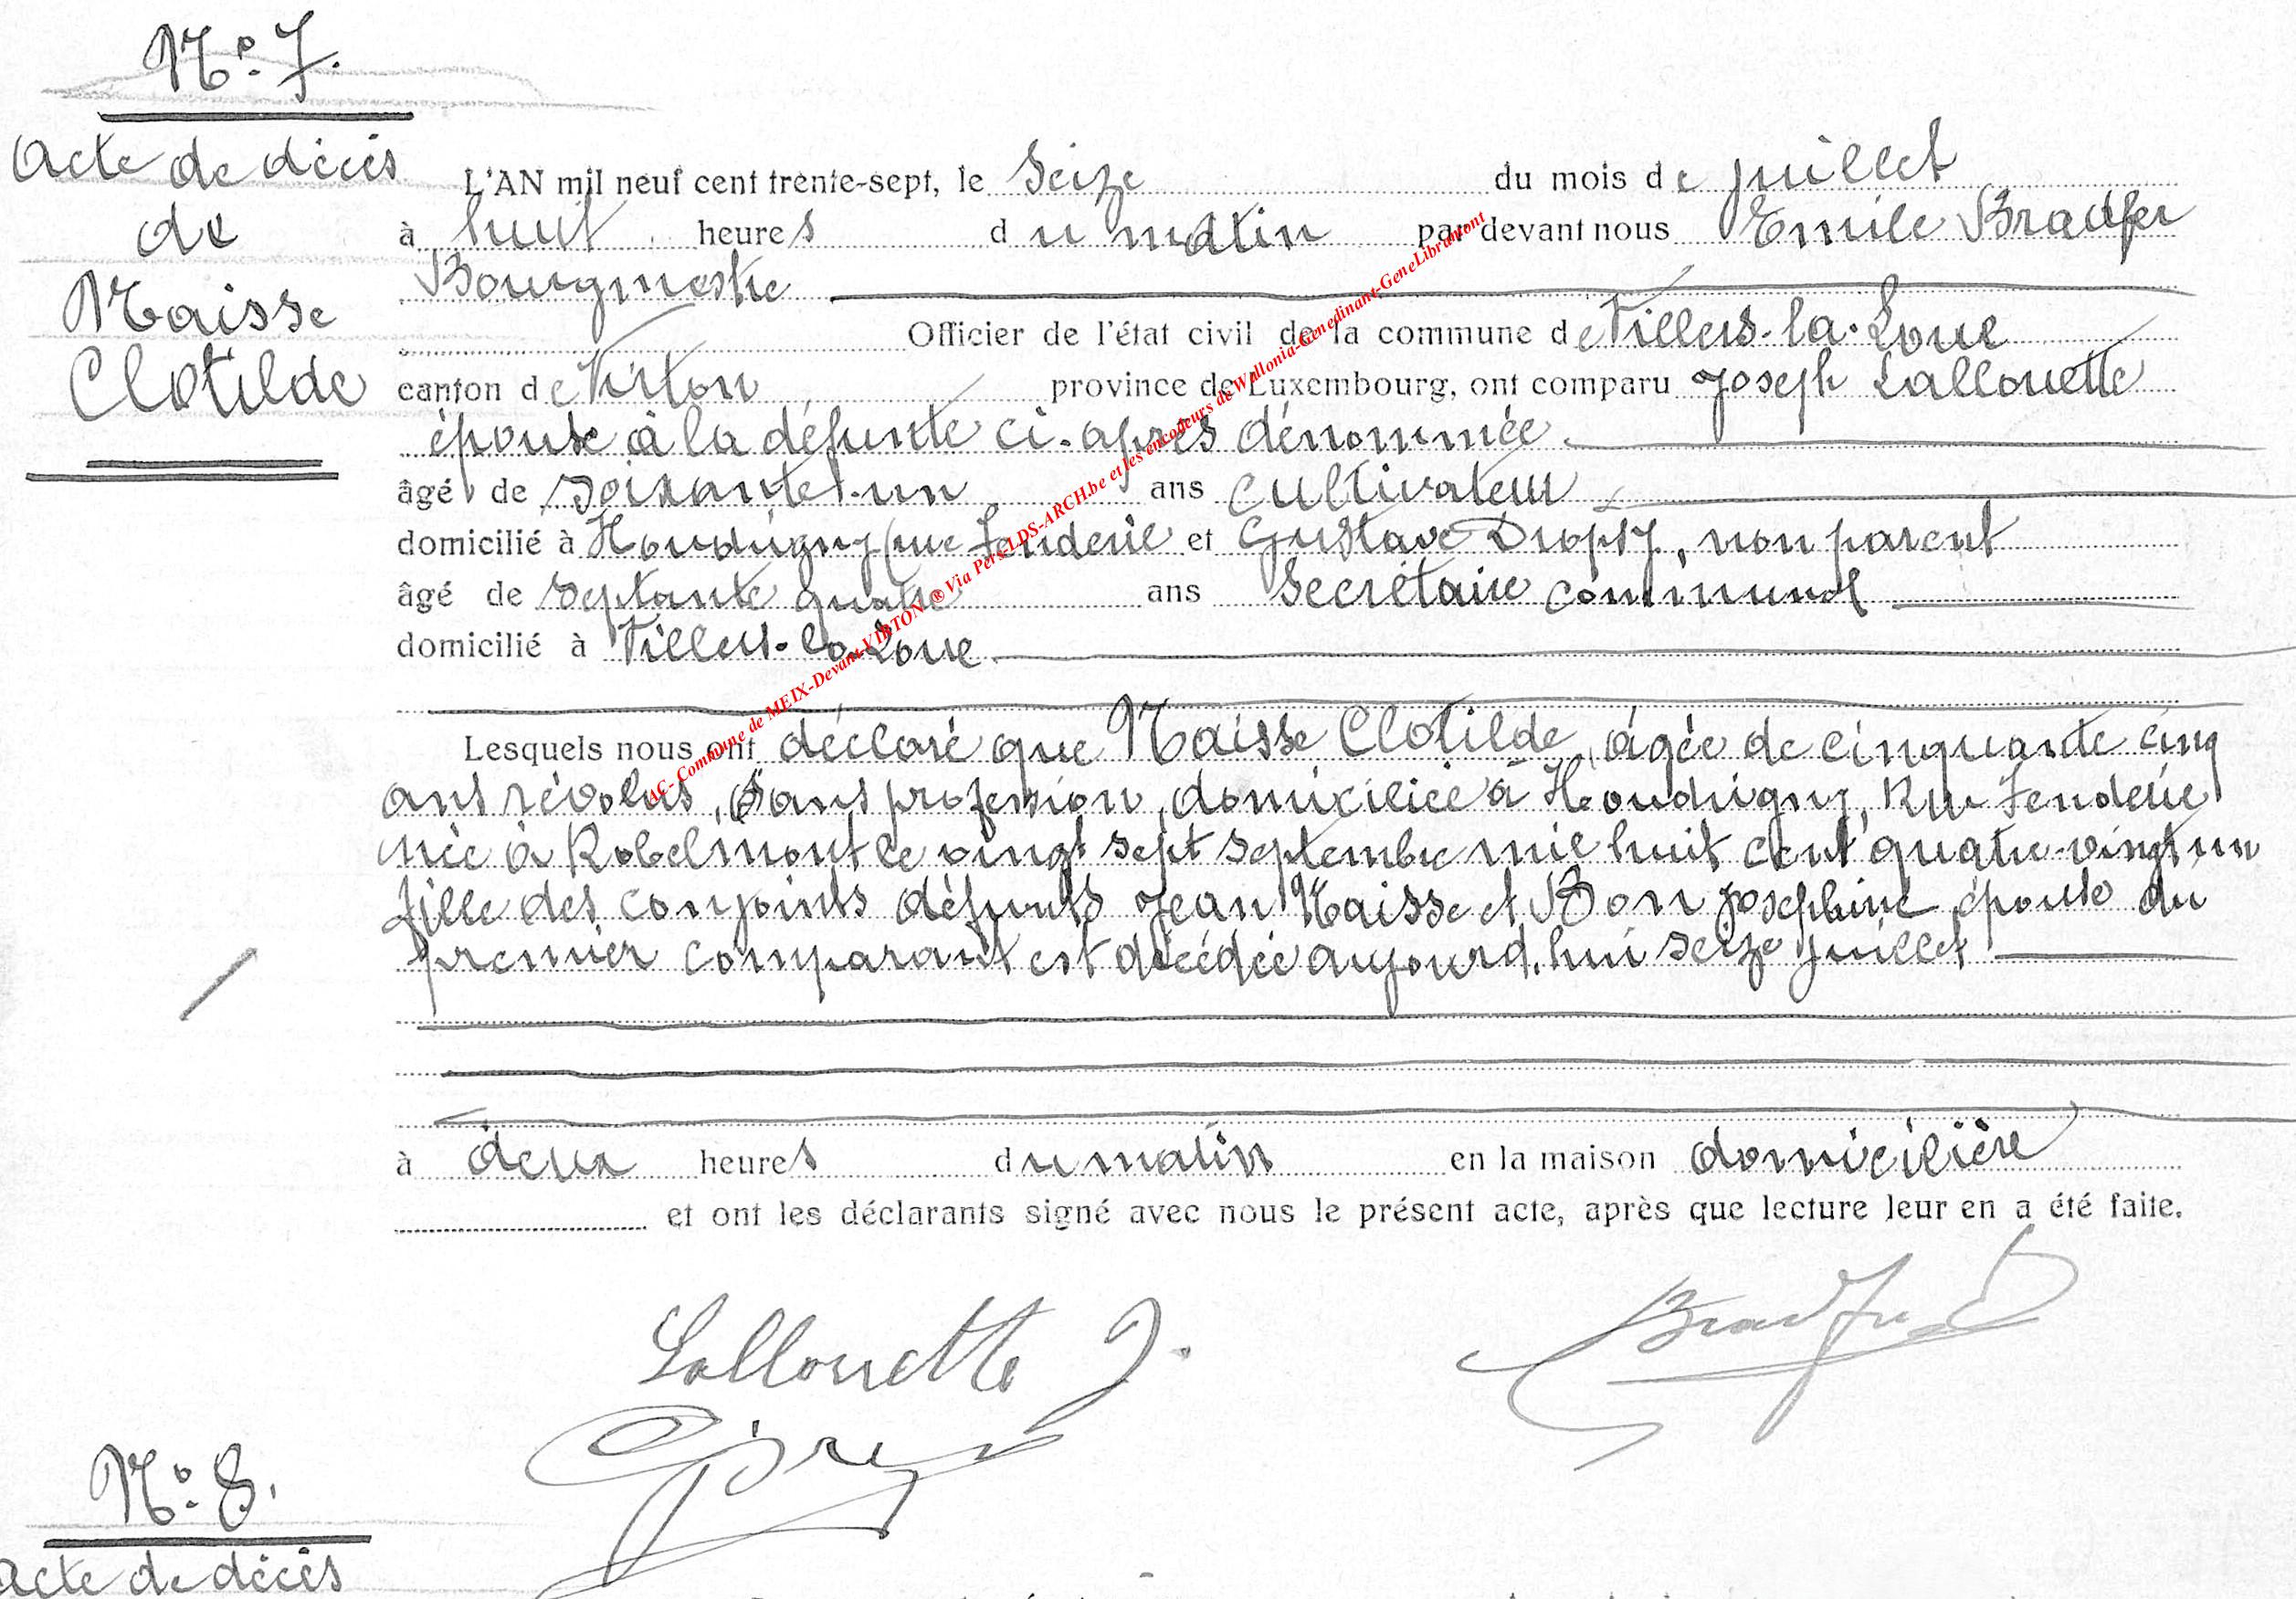 Nº 7.
Acte de décès
de
Naisse
Clotilde
L'AN mil neuf cent trente-sept, le Seize du mois de juillet
à huit heures du matin par devant nous Emile Bradfer
Bourgmestre
Officier de l'état civil de la commune de Villers-la-Loue
canton de Virton province de Luxembourg, ont comparu Joseph Lallouette
époux à la défunte ci-après dénommée
âgé de soixante-un ans cultivateur
domicilié à Houdrigny (rue Fenderie et Gustave Dropsy, non parent
âgé de septante quatre ans Secrétaire communal
domicilié à Villers-la-Loue
Lesquels nous ont déclaré que Naisse Clotilde, âgée de cinquante cinq
ans révolus, sans profession, domiciliée à Houdrigny, Rue Fenderie
née à Robelmont le vingt sept septembre mil huit cent quatre-vingt un
fille des conjoints défunts Jean Naisse et Bon Joséphine, épouse du
premier comparant est décédée aujourd'hui seize juillet
à deux heures du matin en la maison domicilière
et ont les déclarants signé avec nous le présent acte, après que lecture leur en a été faite.
Lallouette J.
Bradfer
Nº 8.
Acte de décès
AC- Commune de MEIX-Devant-VIRTON ® Via Pers-LDS-ARCH.be et les encodeurs de Wallonia-Genedinant-GeneLibramont